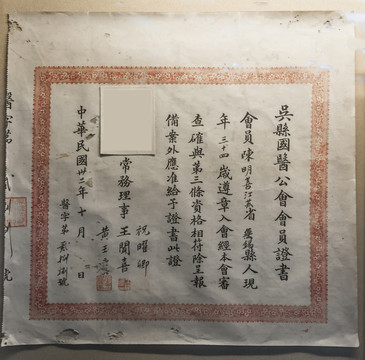 吳縣國醫公會會員證書
會員陳明善江蘇省無錫縣人現
年三十四歲遵章入會經本會審
查確與第三條資格相符除呈報
備案外應准給予證書此證
常務理事
祝曜卿
王聞喜
黃玉
中華民國廿二年十月 日
醫字第 貳捌捌號
醫字第
號